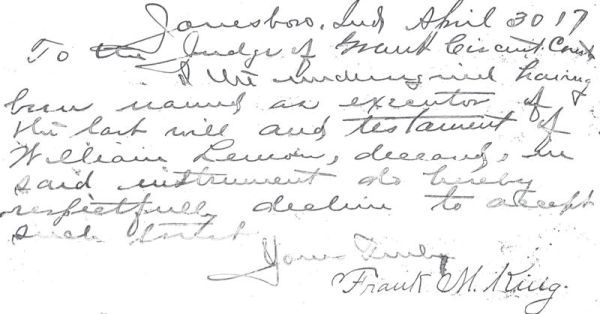 Jonesboro, Ind April 30 17
To the Judge of Grant Circuit Court
I the undersigned having
been named as executor of
the last will and testament of
William Lemon, deceased, in
said instrument do hereby
respectfully decline to accept
such trust
Yours Truly
Frank M. King.